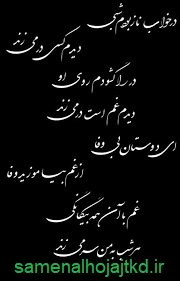 در خواب ناز بودم شبی
دیدم کسی در می زند
در را گشودم روی او
دیدم غم است در می زند
ای دوستان بی وفا
از غم بیاموزید وفا
غم با آن همه بیگانگی
هر شب به من سر می زند
samenalhojajtkd.ir